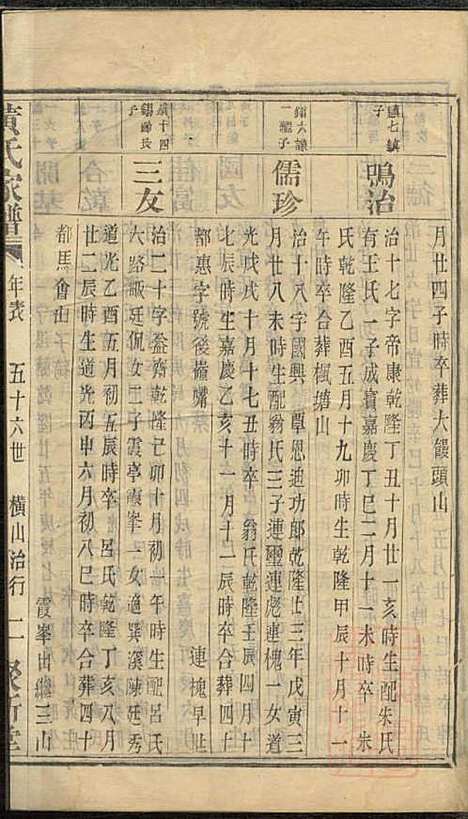 月廿四子時卒葬大饅頭山
鎮七鎮
子
鳴治
治十七字帝康乾隆丁丑十月廿一亥時生配朱氏
有王氏一子成寶嘉慶丁巳二月十一未時卒 朱
氏乾隆乙酉五月十九卯時生乾隆甲辰十月十一
午時卒合葬楓塘山
儒珍
治十八字國興 覃恩迪功郎乾隆廿三年戊寅三
月廿八未時生配翁氏三子連璽連彪連槐一女道
光戊戌十月十七丑時卒 翁氏乾隆廿四年四月十
七辰時生嘉慶乙亥十一月十二辰時卒合葬四十
都惠字號後嶺嘴 連槐早世
三友
治二十字益齊乾隆己卯十月初一午時生配呂氏
大路畈廷侃女二子霞亭霞峯一女適巽溪陳廷秀
道光乙酉五月初五辰時卒 呂氏乾隆丁亥八月
廿二辰時生道光丙申六月初八巳時卒合葬四十
都馬會山 霞峯出繼三山
黃氏家譜 年表 五十六世 橫山治行 二 聚斯堂